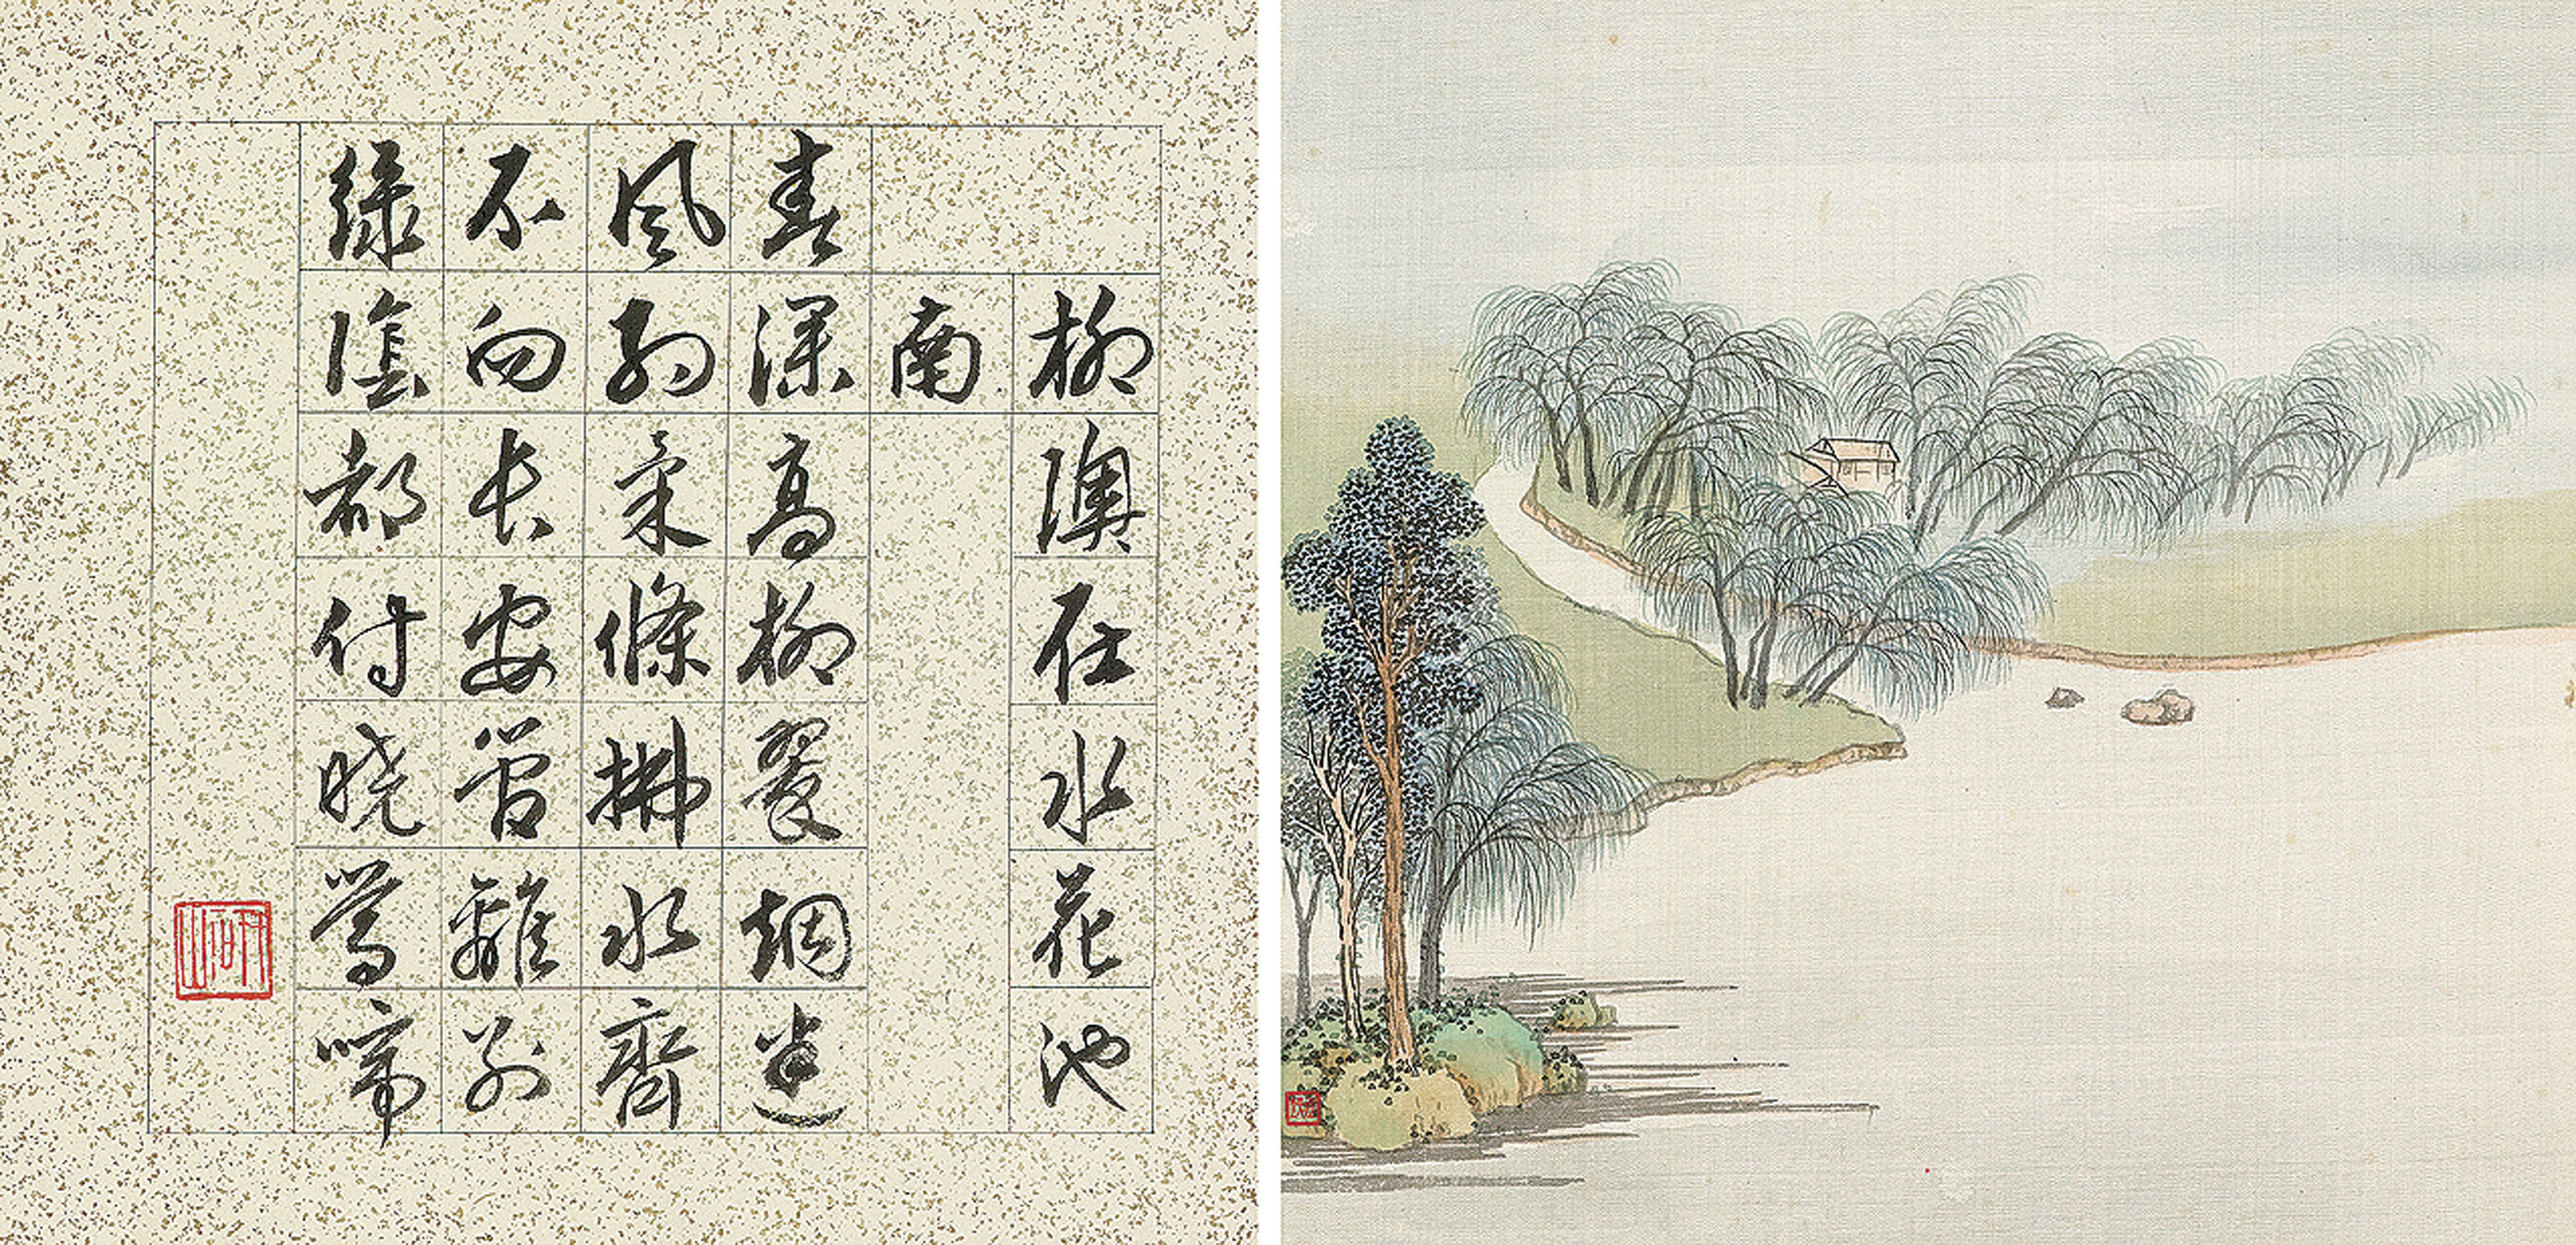 柳隩在水花池
南
春深高柳翠烟迷
風約柔條拂水齊
不向長安管離別
綠陰都付曉鶯啼